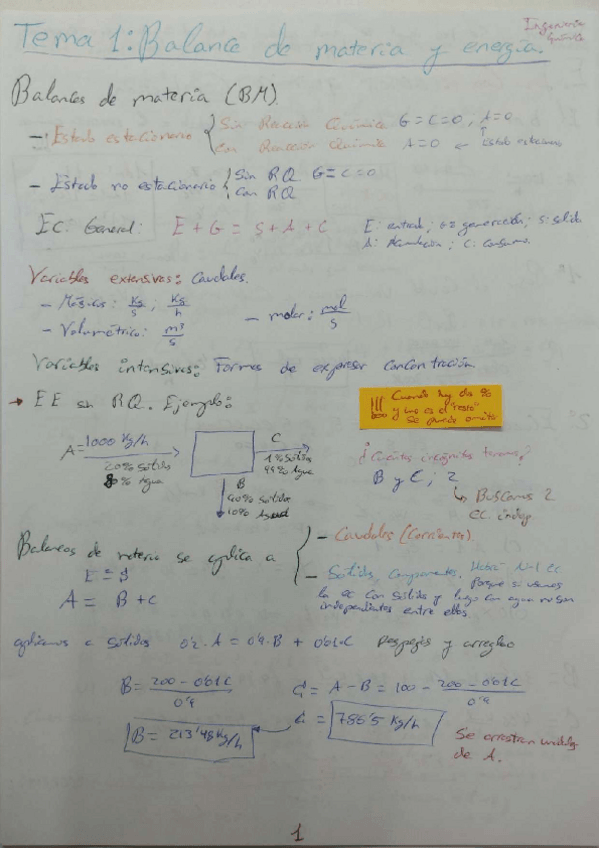 Ingeniería
Química
Tema 1: Balance de materia y energía.
Balances de materia (BM)
- Estado estacionario { Sin Reacción Química G = C = 0, A = 0
Con Reacción Química A = 0 ← Estado estacionario
- Estado no estacionario { Sin RQ G = C = 0
Con RQ
Ec. General: E + G = S + A + C
E: entrada; G = generación; S: salida
A: Acumulación; C: Consumo.
Variables extensivas: Caudales.
- Másicos: Kg/s ; Kg/h
- Volumétrico: m³/s
- molar: mol/s
Variables intensivas: Formas de expresar concentración.
→ EE sin RQ. Ejemplo:
!!! Cuando hay dos %
y uno es el "resto"
se puede omitir
A = 1000 Kg/h
20% sólidos
80% Agua
C
1% Sólidos
99% Agua
B
90% sólidos
10% Agua
¿Cuántas incógnitas tenemos?
B y C; 2
↳ Buscamos 2
ec. indep
Balances de materia se aplica a
- Caudales (Corrientes).
E = S
A = B + C
- Sólidos, Componentes. Habrá N-1 ec
Porque si usamos
la ec con sólidos y luego con agua no son
independientes entre ellos.
aplicamos a sólidos 0'2·A = 0'9·B + 0'01·C Despejo y arreglo
B = 200 - 0'01C / 0'9
C = A - B = 100 - 200 - 0'01C / 0'9
B = 213'48 Kg/h
C = 786'5 Kg/h
Se arrastran unidades
de A.
1